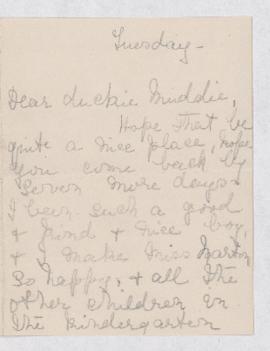 Tuesday -
Dear duckie Muddie,
Hope that be
quite a nice place, hope
you come back by
seven more days
I been such a good
& kind & nice boy,
& I make Miss Barton
so happy, & all the
other children in
the kindergarten